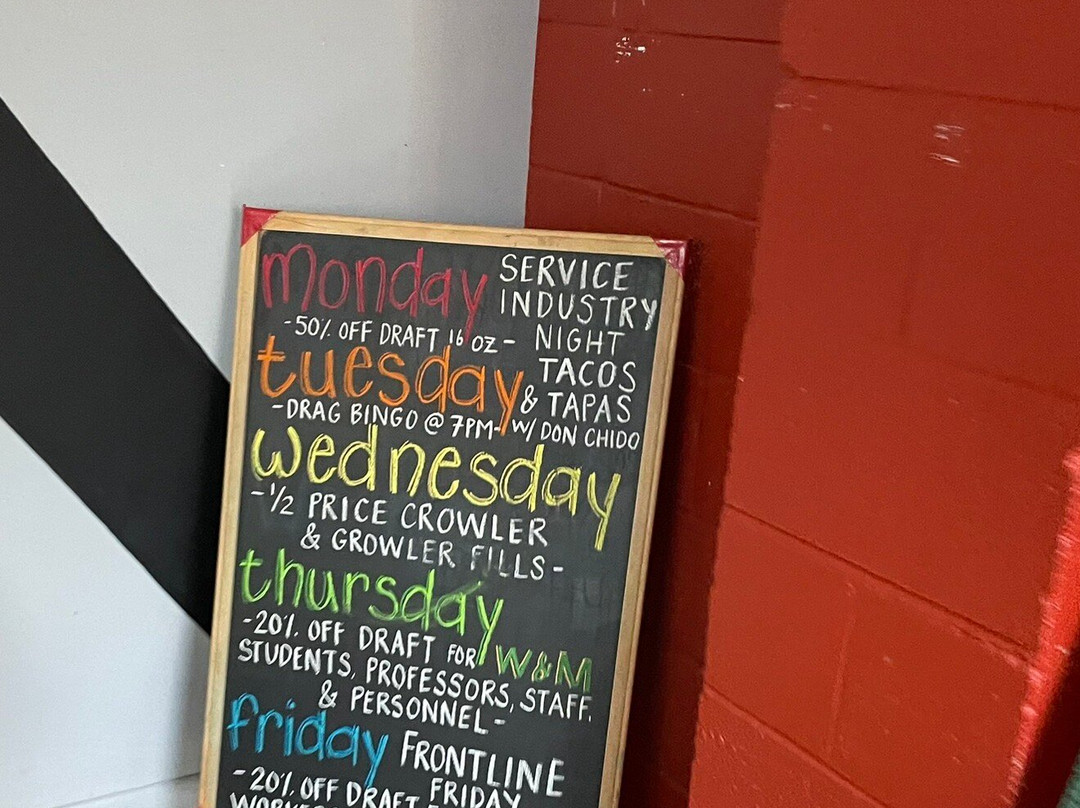 monday SERVICE
INDUSTRY
-50% OFF DRAFT 16 OZ- NIGHT
tuesday TACOS
& TAPAS
-DRAG BINGO @ 7PM- W/ DON CHIDO
wednesday
-1/2 PRICE CROWLER
& GROWLER FILLS-
thursday
-20% OFF DRAFT FOR W&M
STUDENTS, PROFESSORS, STAFF,
& PERSONNEL-
friday FRONTLINE
FRIDAY
-20% OFF DRAFT